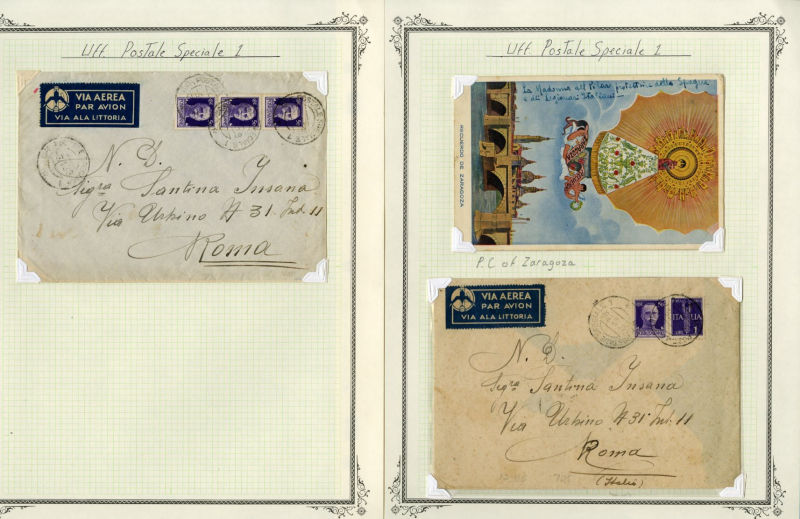 Uff. Postale Speciale 1
VIA AEREA
PAR AVION
VIA ALA LITTORIA
N. D.
Sigra Santina Insana
Via Urbino N 31 Int. 11
Roma
Uff. Postale Speciale 1
La Madonna del Pilar protettrice della Spagna
e dei Legionari Italiani
RECUERDO DE ZARAGOZA
P.C of Zaragoza
VIA AEREA
PAR AVION
VIA ALA LITTORIA
ITALIA
1
N. D.
Sigra Santina Insana
Via Urbino N 31 Int. 11
Roma
(Italia)